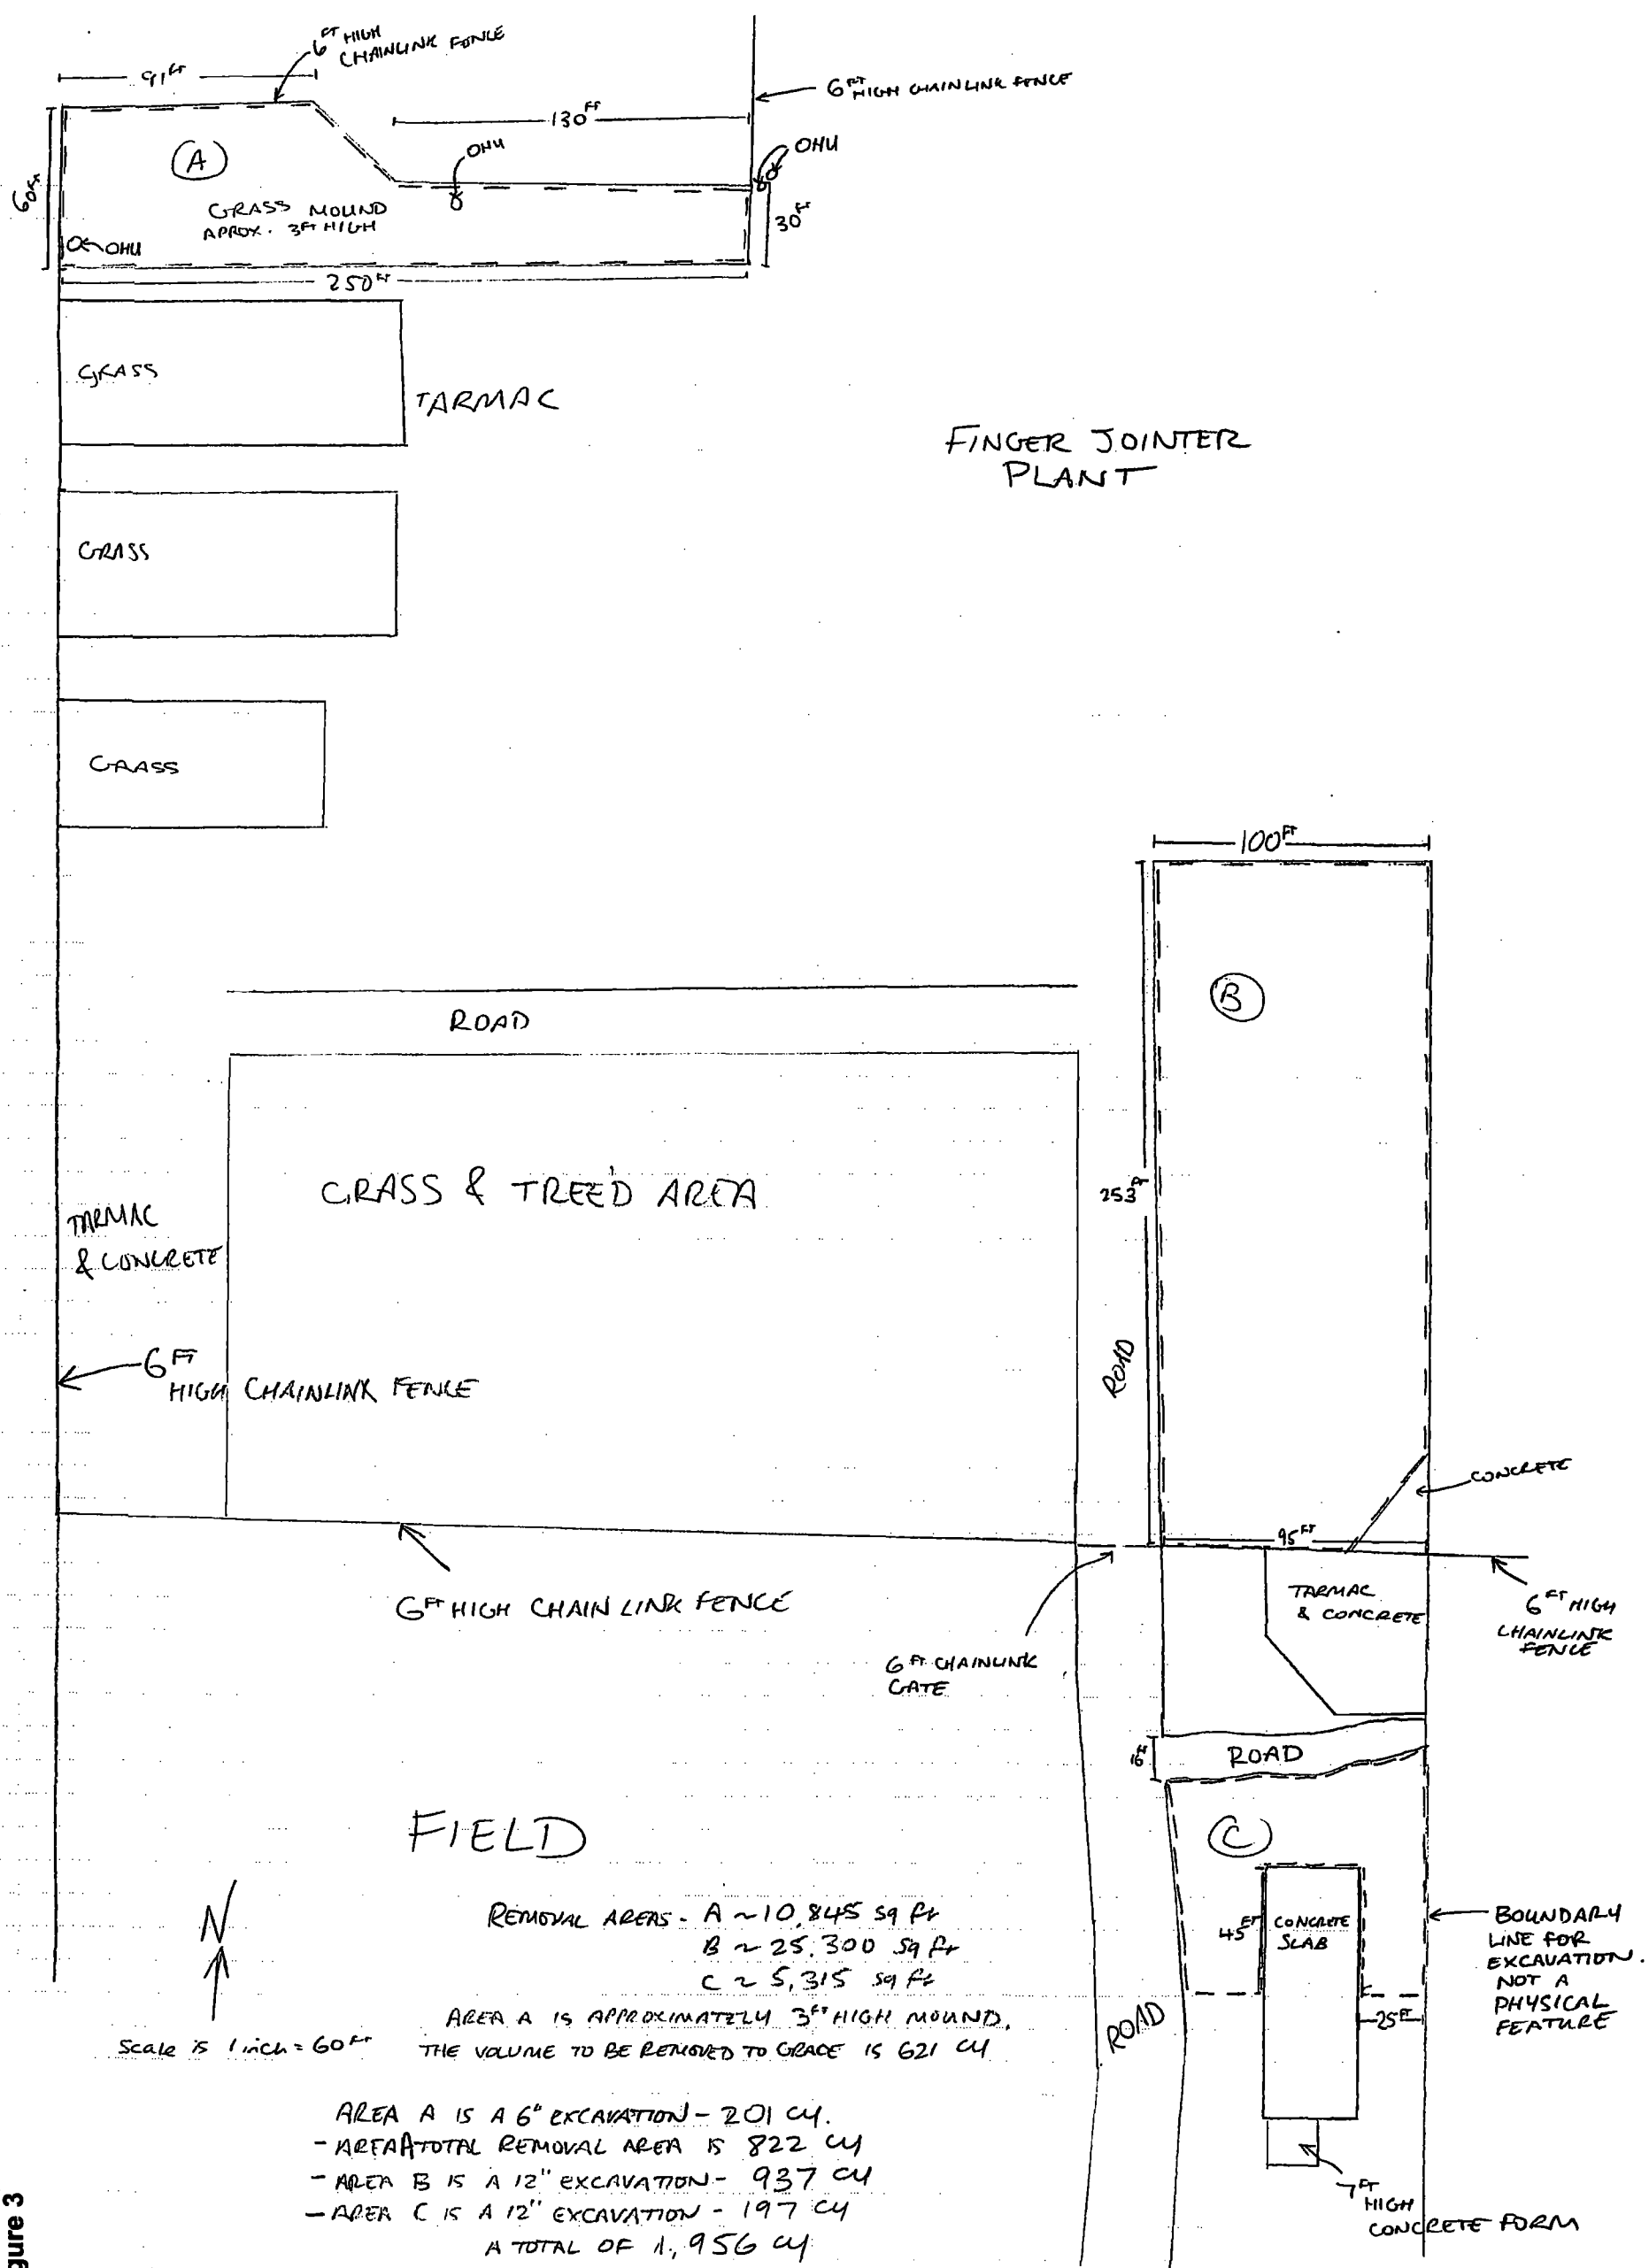 6FT HIGH
CHAINLINK FENCE
91FT
6FT HIGH CHAINLINK FENCE
130FT
OHU
OHU
A
60FT
GRASS MOUND
APROX. 3FT HIGH
30FT
OHU
250FT
GRASS
TARMAC
FINGER JOINTER
PLANT
GRASS
GRASS
100FT
B
ROAD
GRASS & TREE'D AREA
253FT
TARMAC
& CONCRETE
ROAD
6FT
HIGH CHAINLINK FENCE
CONCRETE
95FT
6FT HIGH CHAIN LINK FENCE
TARMAC
& CONCRETE
6FT HIGH
CHAINLINK
FENCE
6FT CHAINLINK
GATE
16FT
ROAD
FIELD
C
N
REMOVAL AREAS - A ~ 10,845 sq ft
B ~ 25,300 sq ft
C ~ 5,315 sq ft
45FT
CONCRETE
SLAB
BOUNDARY
LINE FOR
EXCAVATION.
NOT A
PHYSICAL
FEATURE
25FT
ROAD
AREA A IS APPROXIMATELY 3FT HIGH MOUND.
Scale is 1 inch = 60FT
THE VOLUME TO BE REMOVED TO GRADE IS 621 CY
AREA A IS A 6" EXCAVATION - 201 CY.
- AREA A TOTAL REMOVAL AREA IS 822 CY
- AREA B IS A 12" EXCAVATION - 937 CY
- AREA C IS A 12" EXCAVATION - 197 CY
A TOTAL OF 1,956 CY
7FT
HIGH
CONCRETE FORM
gure 3